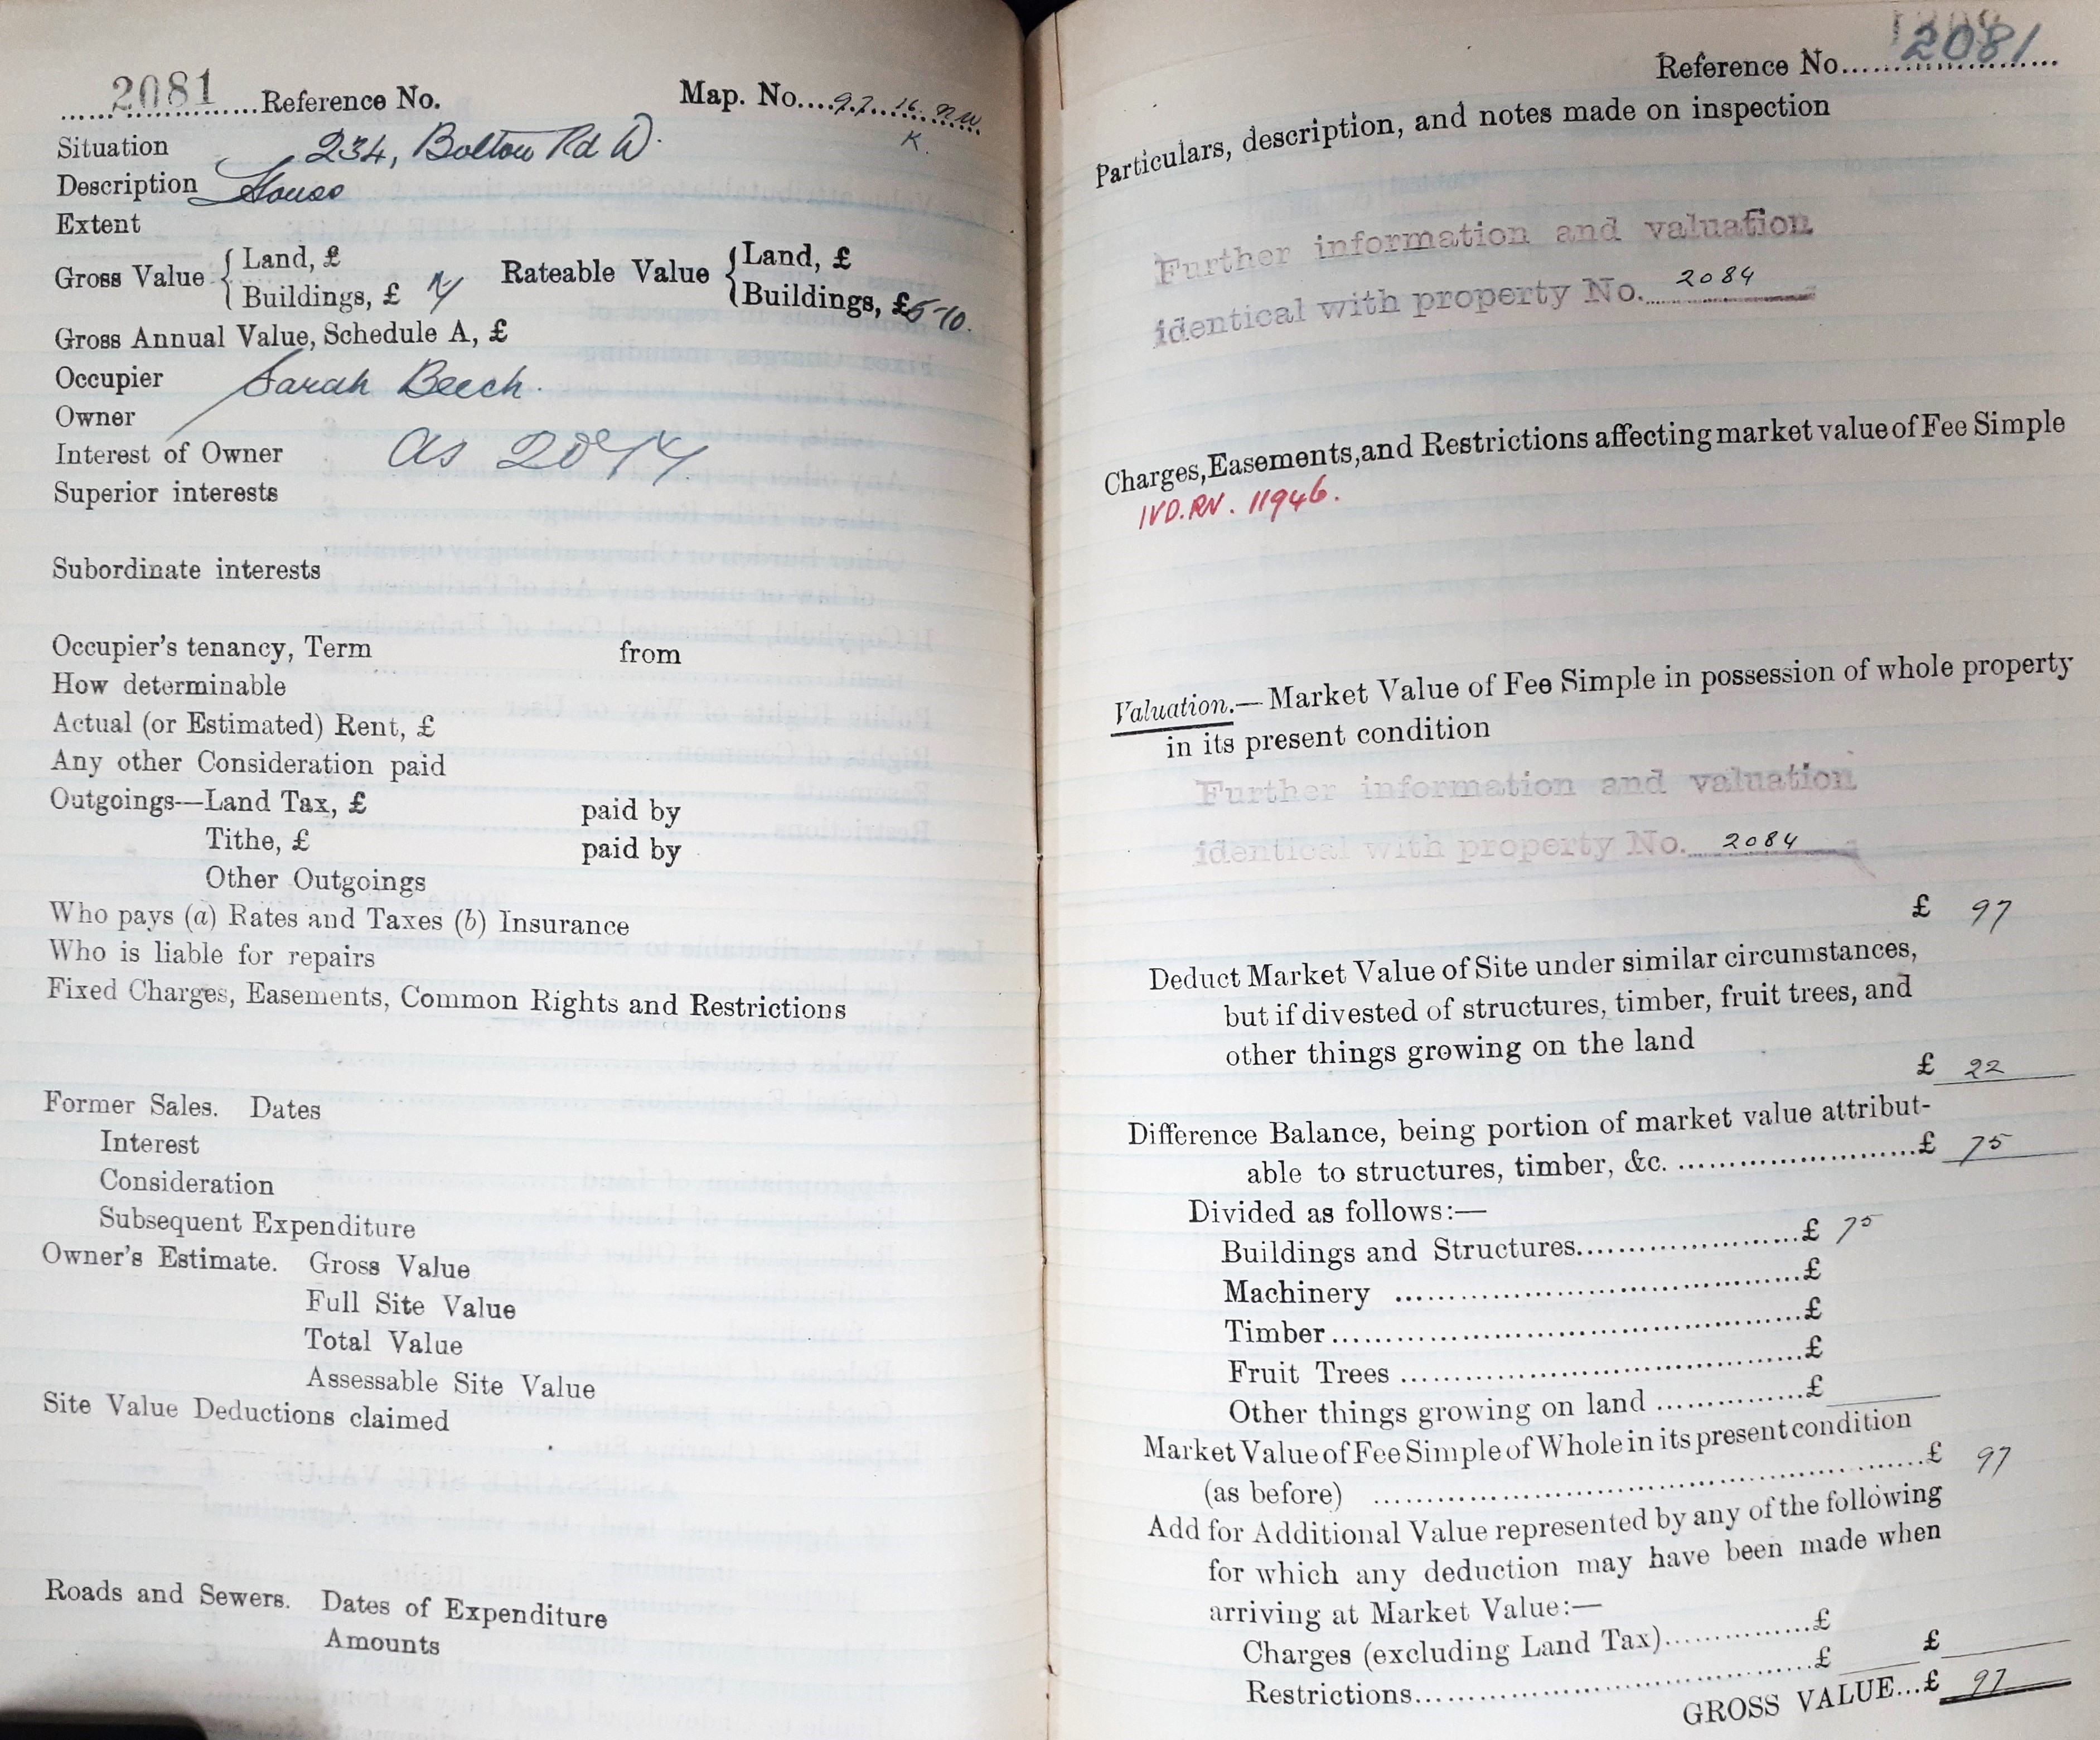 2081 Reference No. Map. No. 97. 16. NW
K.
Situation 234, Bolton Rd W.
Description House
Extent
Gross Value { Land, £ Rateable Value { Land, £
Buildings, £ Buildings, £ 5-10.
Gross Annual Value, Schedule A, £
Occupier Sarah Beech.
Owner
Interest of Owner as
Superior interests
Subordinate interests
Occupier's tenancy, Term from
How determinable
Actual (or Estimated) Rent, £
Any other Consideration paid
Outgoings—Land Tax, £ paid by
Tithe, £ paid by
Other Outgoings
Who pays (a) Rates and Taxes (b) Insurance
Who is liable for repairs
Fixed Charges, Easements, Common Rights and Restrictions
Former Sales. Dates
Interest
Consideration
Subsequent Expenditure
Owner's Estimate. Gross Value
Full Site Value
Total Value
Assessable Site Value
Site Value Deductions claimed
Roads and Sewers. Dates of Expenditure
Amounts
Reference No. 2081
Particulars, description, and notes made on inspection
Further information and valuation
identical with property No. 2084
Charges, Easements, and Restrictions affecting market value of Fee Simple
IVD. RN. 11946.
Valuation.—Market Value of Fee Simple in possession of whole property
in its present condition
Further information and valuation
identical with property No. 2084
£ 97
Deduct Market Value of Site under similar circumstances,
but if divested of structures, timber, fruit trees, and
other things growing on the land
£ 22
Difference Balance, being portion of market value attribut-
able to structures, timber, &c. £ 75
Divided as follows:—
Buildings and Structures £ 75
Machinery £
Timber £
Fruit Trees £
Other things growing on land £
Market Value of Fee Simple of Whole in its present condition
(as before) £ 97
Add for Additional Value represented by any of the following
for which any deduction may have been made when
arriving at Market Value:—
Charges (excluding Land Tax) £
Restrictions £ £
GROSS VALUE...£ 97